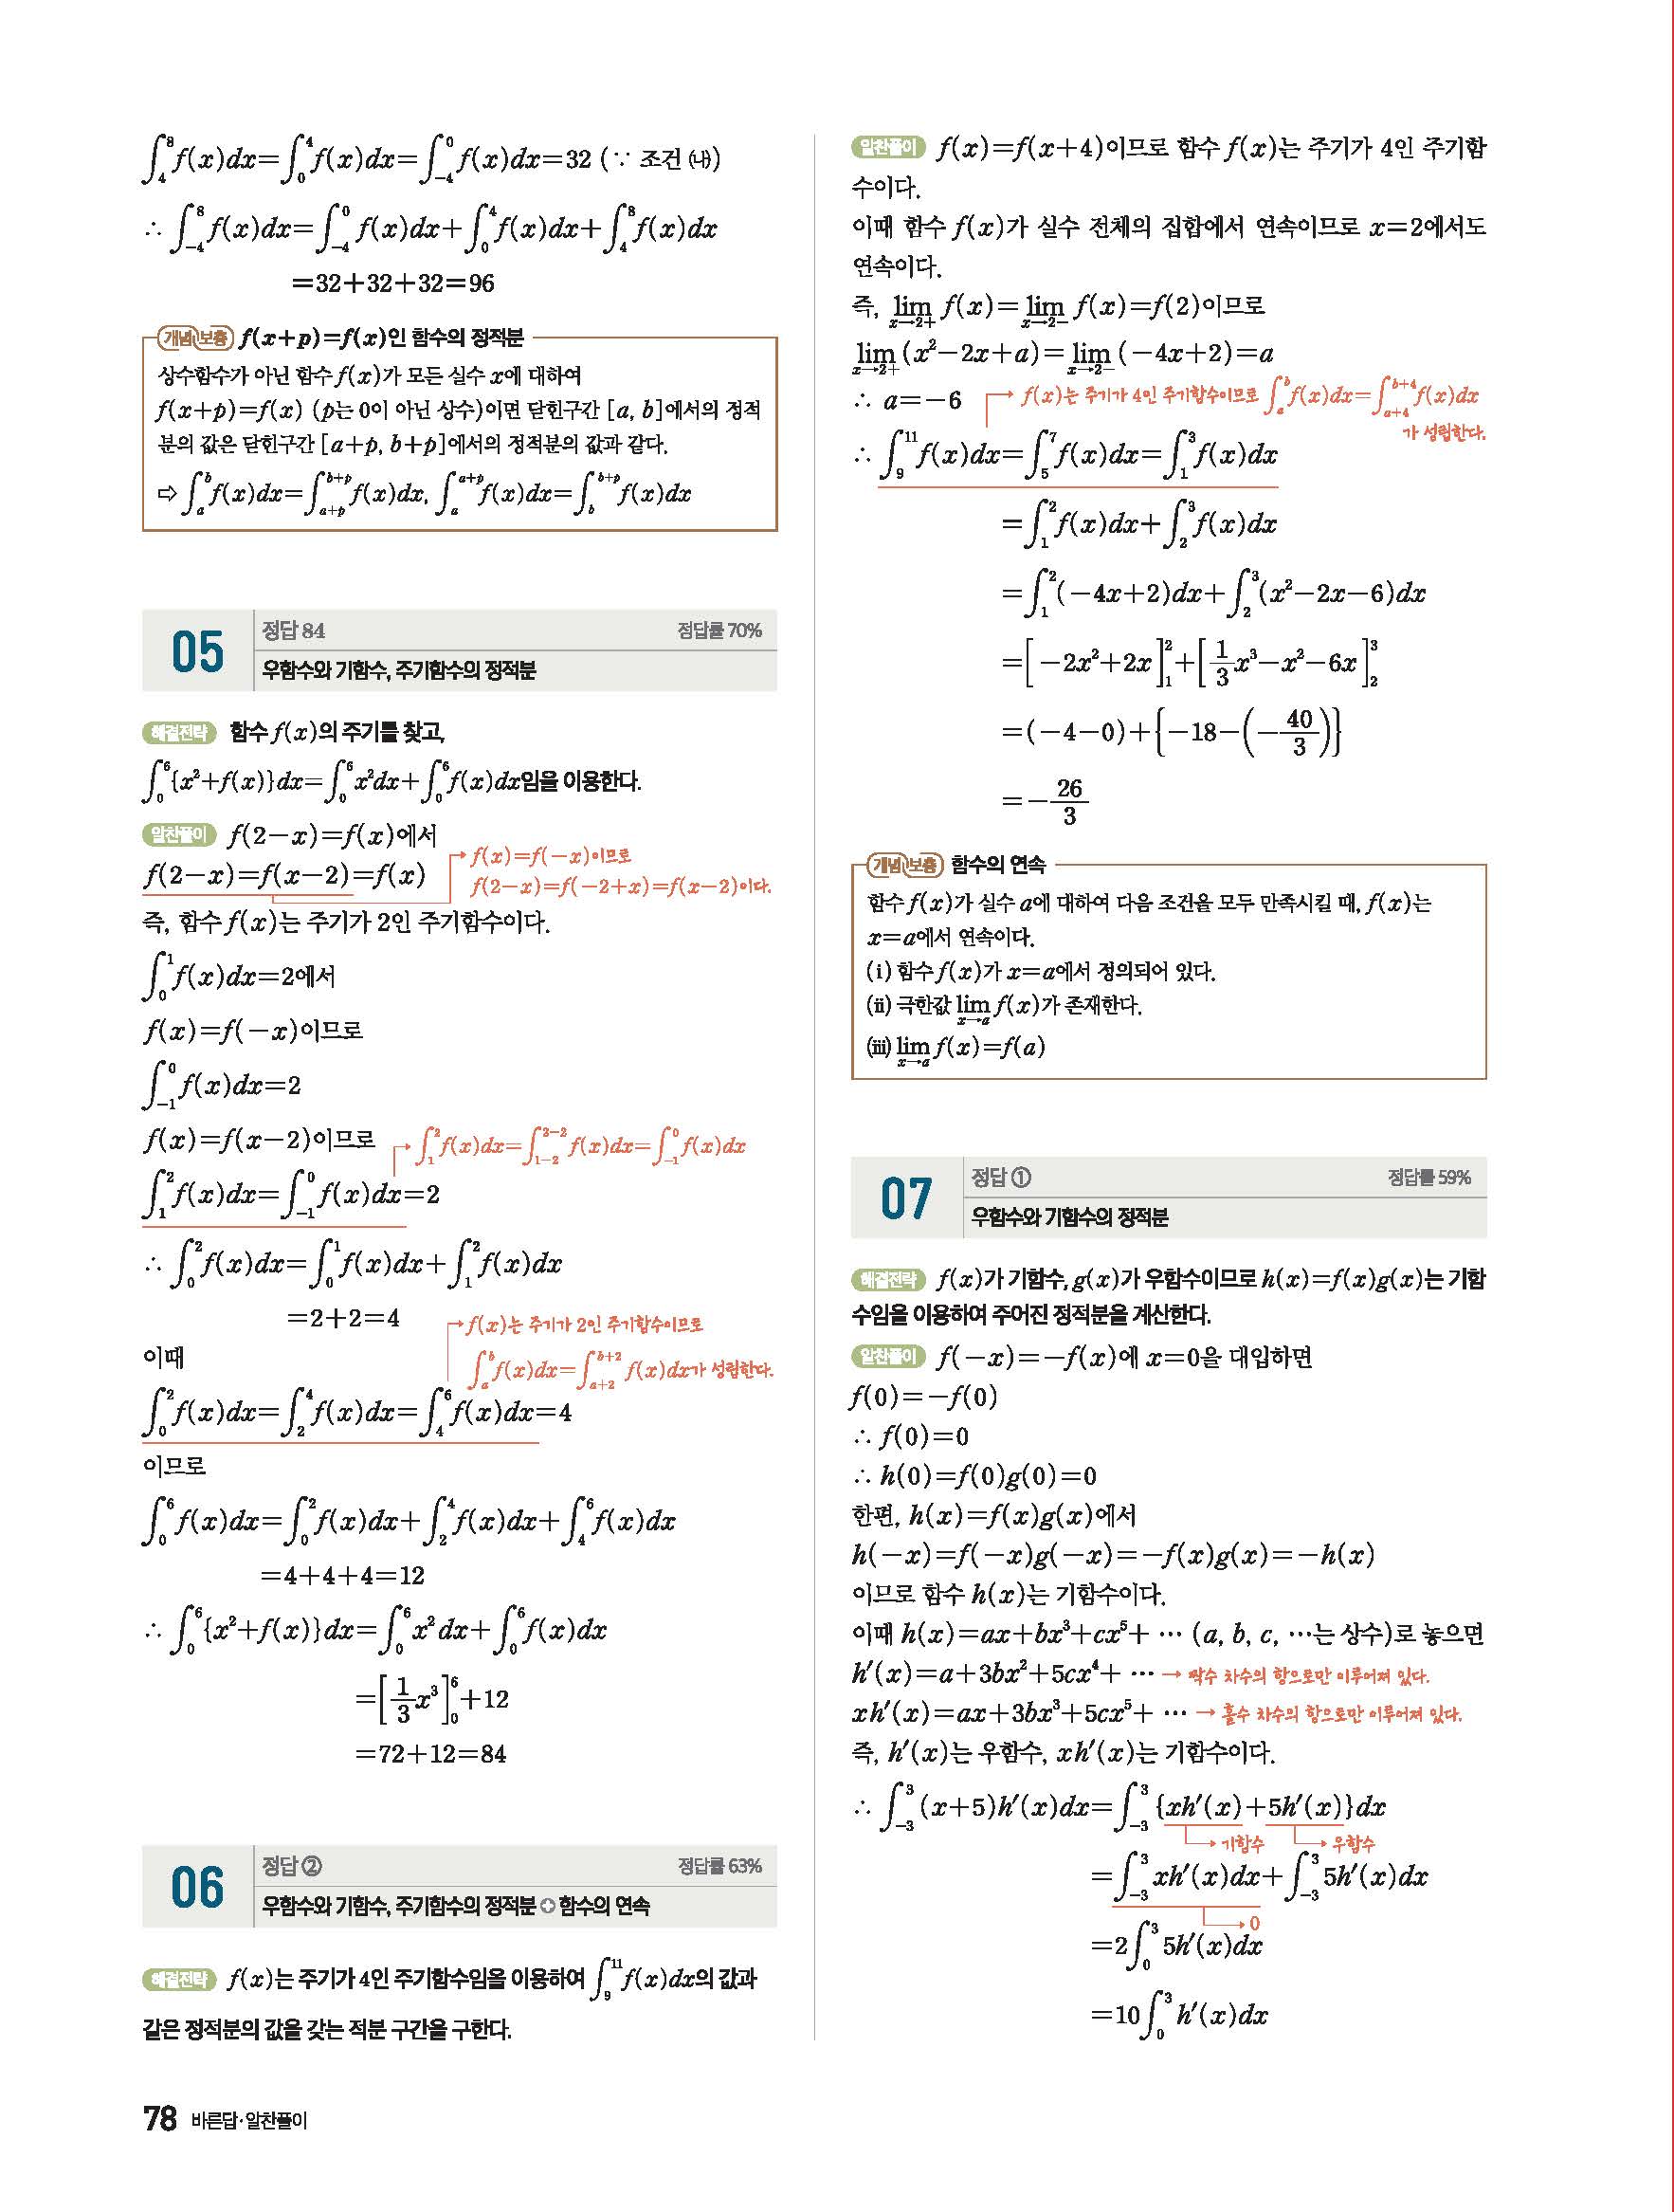 ∫₄⁸f(x)dx=∫₀⁴f(x)dx=∫₋₄⁰f(x)dx=32 (∵ 조건 ㈏)
∴ ∫₋₄⁸f(x)dx=∫₋₄⁰f(x)dx+∫₀⁴f(x)dx+∫₄⁸f(x)dx
=32+32+32=96
개념보충 f(x+p)=f(x)인 함수의 정적분
상수함수가 아닌 함수 f(x)가 모든 실수 x에 대하여
f(x+p)=f(x) (p는 0이 아닌 상수)이면 닫힌구간 [a, b]에서의 정적
분의 값은 닫힌구간 [a+p, b+p]에서의 정적분의 값과 같다.
⇨ ∫ₐᵇf(x)dx=∫_{a+p}^{b+p}f(x)dx, ∫_{a}^{a+p}f(x)dx=∫_{b}^{b+p}f(x)dx
05 정답 84 정답률 70%
우함수와 기함수, 주기함수의 정적분
해결전략 함수 f(x)의 주기를 찾고,
∫₀⁶{x²+f(x)}dx=∫₀⁶x²dx+∫₀⁶f(x)dx임을 이용한다.
알찬풀이 f(2-x)=f(x)에서
f(2-x)=f(x-2)=f(x)
→ f(x)=f(-x)이므로
f(2-x)=f(-2+x)=f(x-2)이다.
즉, 함수 f(x)는 주기가 2인 주기함수이다.
∫₀¹f(x)dx=2에서
f(x)=f(-x)이므로
∫₋₁⁰f(x)dx=2
f(x)=f(x-2)이므로 → ∫₁²f(x)dx=∫_{1-2}^{2-2}f(x)dx=∫₋₁⁰f(x)dx
∫₁²f(x)dx=∫₋₁⁰f(x)dx=2
∴ ∫₀²f(x)dx=∫₀¹f(x)dx+∫₁²f(x)dx
=2+2=4
→ f(x)는 주기가 2인 주기함수이므로
이때
∫ₐᵇf(x)dx=∫_{a+2}^{b+2}f(x)dx가 성립한다.
∫₀²f(x)dx=∫₂⁴f(x)dx=∫₄⁶f(x)dx=4
이므로
∫₀⁶f(x)dx=∫₀²f(x)dx+∫₂⁴f(x)dx+∫₄⁶f(x)dx
=4+4+4=12
∴ ∫₀⁶{x²+f(x)}dx=∫₀⁶x²dx+∫₀⁶f(x)dx
=[1/3 x³]₀⁶+12
=72+12=84
06 정답 ② 정답률 63%
우함수와 기함수, 주기함수의 정적분 ✚ 함수의 연속
해결전략 f(x)는 주기가 4인 주기함수임을 이용하여 ∫₉¹¹f(x)dx의 값과
같은 정적분의 값을 갖는 적분 구간을 구한다.
알찬풀이 f(x)=f(x+4)이므로 함수 f(x)는 주기가 4인 주기함
수이다.
이때 함수 f(x)가 실수 전체의 집합에서 연속이므로 x=2에서도
연속이다.
즉, lim_{x→2+} f(x)=lim_{x→2-} f(x)=f(2)이므로
lim_{x→2+}(x²-2x+a)=lim_{x→2-}(-4x+2)=a
∴ a=-6 → f(x)는 주기가 4인 주기함수이므로 ∫ₐᵇf(x)dx=∫_{a+4}^{b+4}f(x)dx
가 성립한다.
∴ ∫₉¹¹f(x)dx=∫₅⁷f(x)dx=∫₁³f(x)dx
=∫₁²f(x)dx+∫₂³f(x)dx
=∫₁²(-4x+2)dx+∫₂³(x²-2x-6)dx
=[-2x²+2x]₁²+[1/3 x³-x²-6x]₂³
=(-4-0)+{-18-(-40/3)}
=-26/3
개념보충 함수의 연속
함수 f(x)가 실수 a에 대하여 다음 조건을 모두 만족시킬 때, f(x)는
x=a에서 연속이다.
(ⅰ) 함수 f(x)가 x=a에서 정의되어 있다.
(ⅱ) 극한값 lim_{x→a} f(x)가 존재한다.
(ⅲ) lim_{x→a} f(x)=f(a)
07 정답 ① 정답률 59%
우함수와 기함수의 정적분
해결전략 f(x)가 기함수, g(x)가 우함수이므로 h(x)=f(x)g(x)는 기함
수임을 이용하여 주어진 정적분을 계산한다.
알찬풀이 f(-x)=-f(x)에 x=0을 대입하면
f(0)=-f(0)
∴ f(0)=0
∴ h(0)=f(0)g(0)=0
한편, h(x)=f(x)g(x)에서
h(-x)=f(-x)g(-x)=-f(x)g(x)=-h(x)
이므로 함수 h(x)는 기함수이다.
이때 h(x)=ax+bx³+cx⁵+ ⋯ (a, b, c, ⋯는 상수)로 놓으면
h′(x)=a+3bx²+5cx⁴+ ⋯ → 짝수 차수의 항으로만 이루어져 있다.
xh′(x)=ax+3bx³+5cx⁵+ ⋯ → 홀수 차수의 항으로만 이루어져 있다.
즉, h′(x)는 우함수, xh′(x)는 기함수이다.
∴ ∫₋₃³(x+5)h′(x)dx=∫₋₃³{xh′(x)+5h′(x)}dx
→ 기함수 → 우함수
=∫₋₃³xh′(x)dx+∫₋₃³5h′(x)dx
→ 0
=2∫₀³5h′(x)dx
=10∫₀³h′(x)dx
78 바른답·알찬풀이